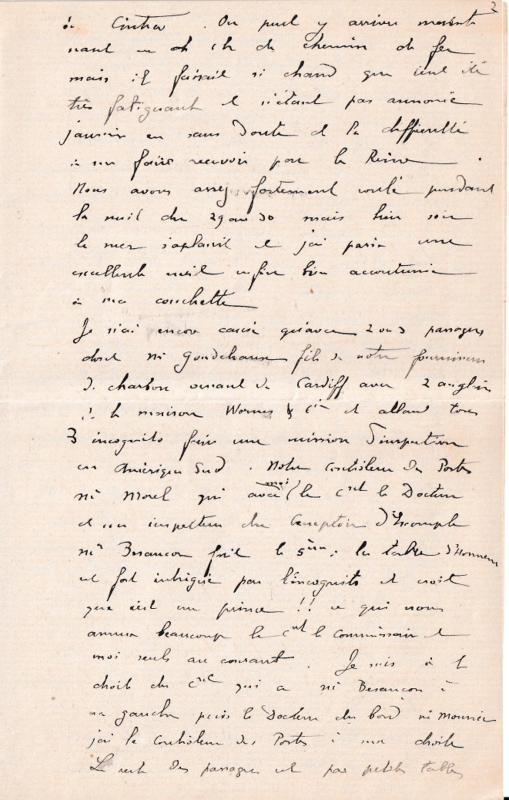 2
à Cintra. On peut y arriver maintenant
nant en 1h de chemin de fer
mais il faisait si chaud que c'eut été
très fatiguant et n'étant pas annoncé
j'aurais eu sans doute de la difficulté
à me faire recevoir par la Reine.
Nous avons assez fortement roulé pendant
la nuit du 29 au 30 mais hier soir
la mer s'aplanit et j'ai passé une
excellente nuit enfin bien accoutumé
à ma couchette
Je n'ai encore causé qu'avec 2 ou 3 passagers
dont Mr Goudchaux fils de notre fournisseur
de charbon venant de Cardiff avec 2 anglais
de la maison Worms & Cie et allant tous
3 incognito faire une mission d'inspection
en Amérique Sud. Notre Contrôleur des Postes
Mr Morel qui avec moi le Cnt le Docteur
et un inspecteur du Comptoir d'Escompte
Mr Besançon fait le 5ème de la table d'honneur
est fort intrigué par l'incognito et croit
que c'est un prince !! ce qui nous
amuse beaucoup le Cnt le Commissaire et
moi seuls au courant. Je suis à la
droite du Cnt qui a Mr Besançon à
sa gauche puis le Docteur du bord Mr
j'ai le Contrôleur des Postes à ma droite
Le reste des passagers est par petites tables